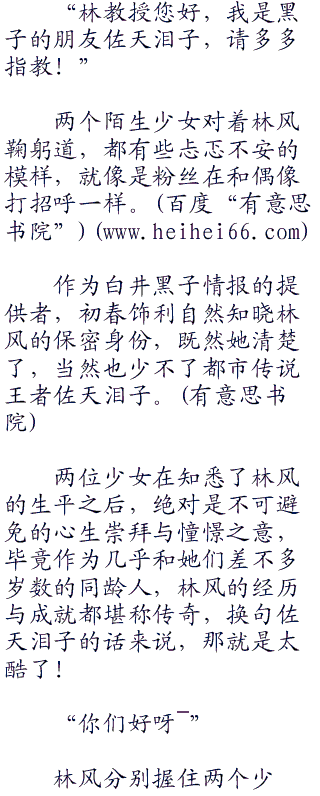 “林教授您好，我是黑
子的朋友佐天泪子，请多多
指教！”
两个陌生少女对着林风
鞠躬道，都有些忐忑不安的
模样，就像是粉丝在和偶像
打招呼一样。(百度“有意思
书院”)(www.heihei66.com)
作为白井黑子情报的提
供者，初春饰利自然知晓林
风的保密身份，既然她清楚
了，当然也少不了都市传说
王者佐天泪子。(有意思书
院)
两位少女在知悉了林风
的生平之后，绝对是不可避
免的心生崇拜与憧憬之意，
毕竟作为几乎和她们差不多
岁数的同龄人，林风的经历
与成就都堪称传奇，换句佐
天泪子的话来说，那就是太
酷了！
“你们好呀¯”
林风分别握住两个少